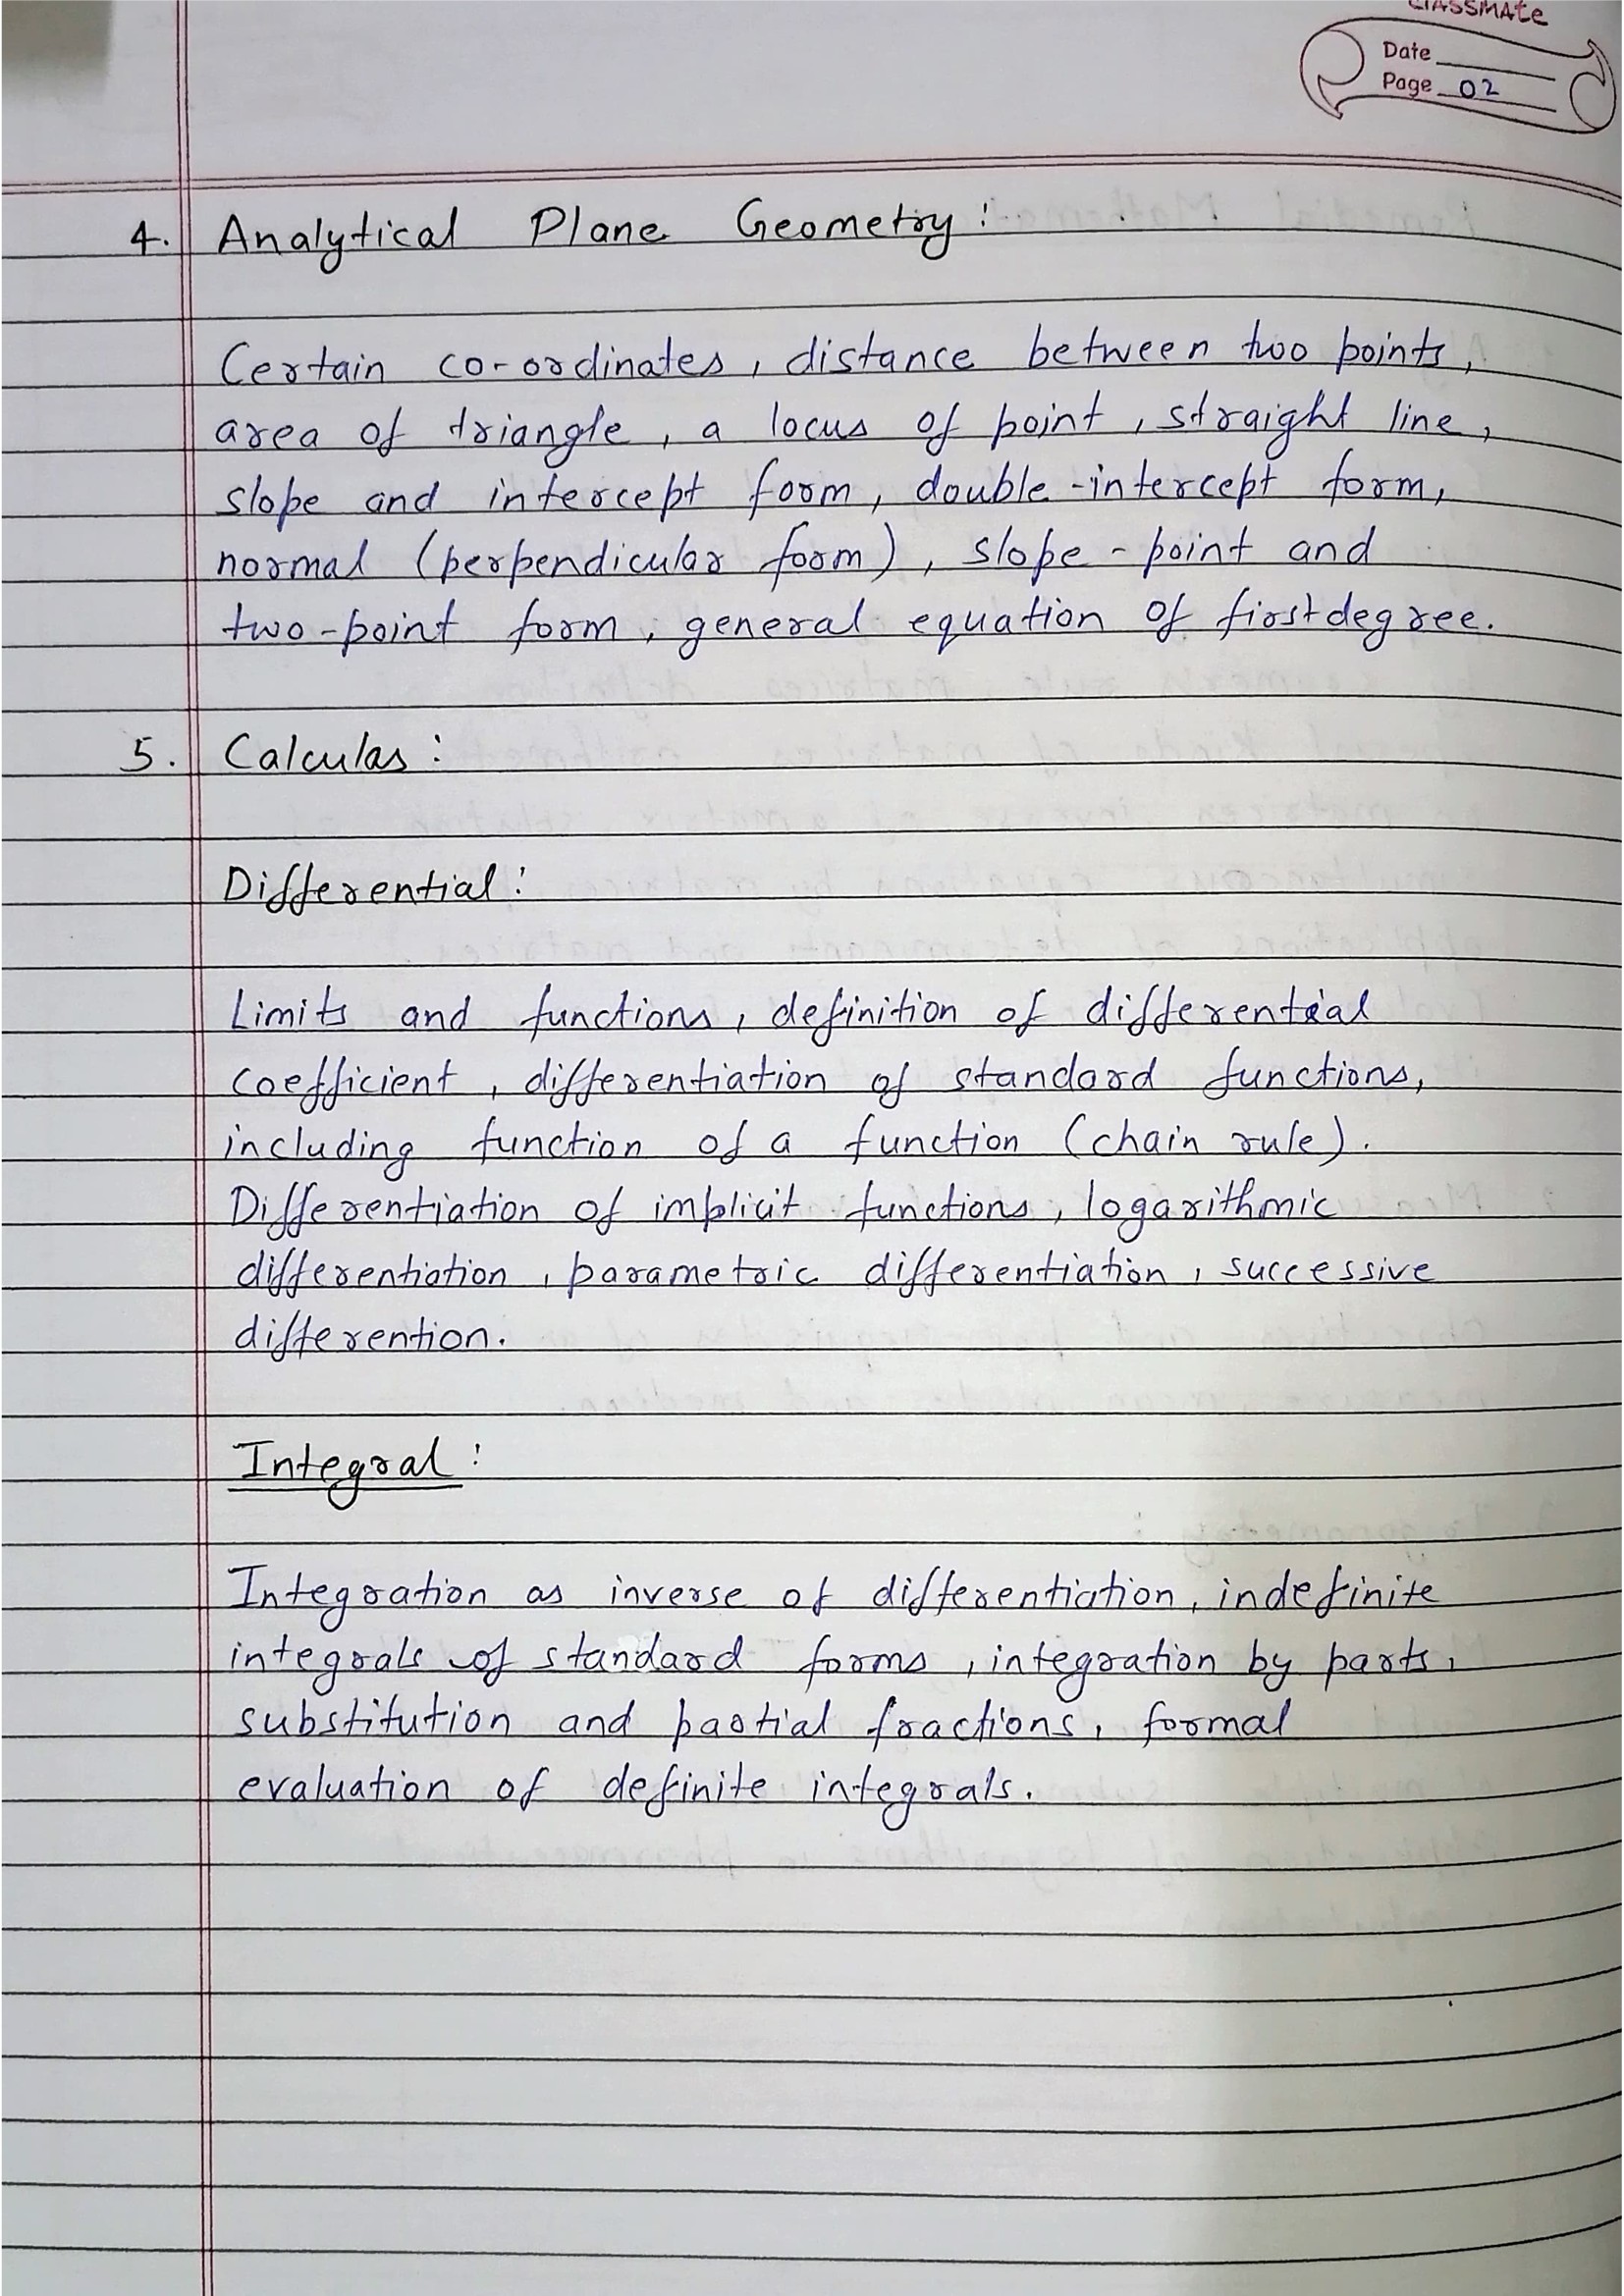 classmate
Date
Page 02
4. Analytical Plane Geometry:
Certain co-ordinates, distance between two points,
area of triangle, a locus of point, straight line,
slope and intercept form, double-intercept form,
normal (perpendicular form), slope-point and
two-point form, general equation of first degree.
5. Calculas:
Differential:
Limits and functions, definition of differential
coefficient, differentiation of standard functions,
including function of a function (chain rule).
Differentiation of implicit functions, logarithmic
differentiation, parametric differentiation, successive
differention.
Integral:
Integration as inverse of differentiation, indefinite
integrals of standard forms, integration by parts,
substitution and partial fractions, formal
evaluation of definite integrals.